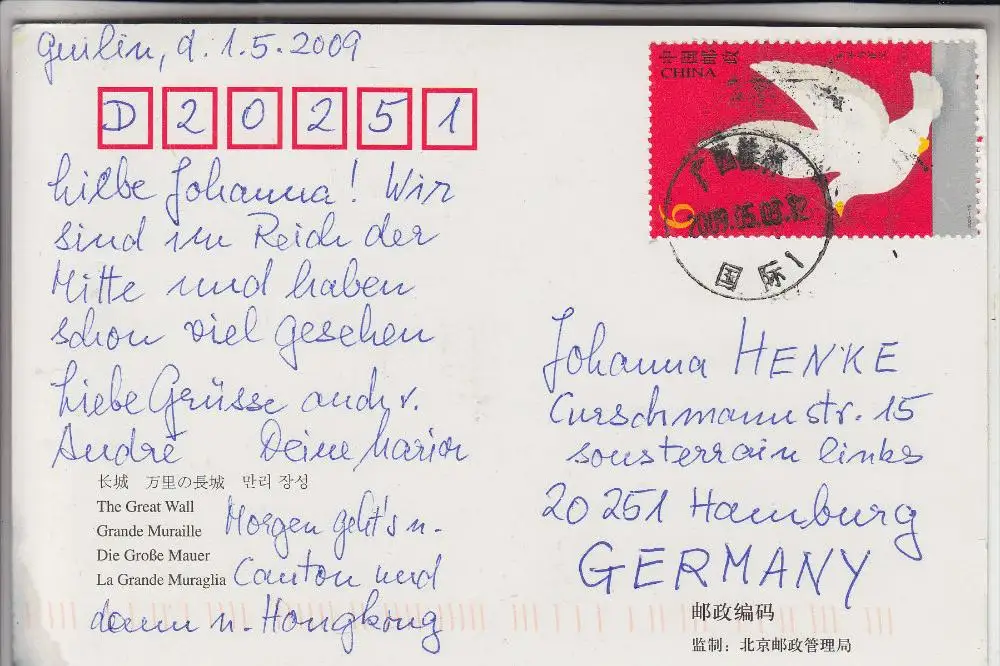 Guilin, d. 1.5.2009
D 20251
liebe Johanna! Wir
sind im Reich der
Mitte und haben
schon viel gesehen
Liebe Grüsse auch v.
André Deine Marion
长城 万里の長城 만리 장성
The Great Wall
Grande Muraille
Die Große Mauer
La Grande Muraglia
Morgen geht's n.
Canton und
dann n. Hongkong
中国邮政
CHINA
6
广西桂林
2009.05.03.12
国际1
Johanna HENKE
Curschmannstr. 15
sousterrain links
20251 Hamburg
GERMANY
邮政编码
监制：北京邮政管理局